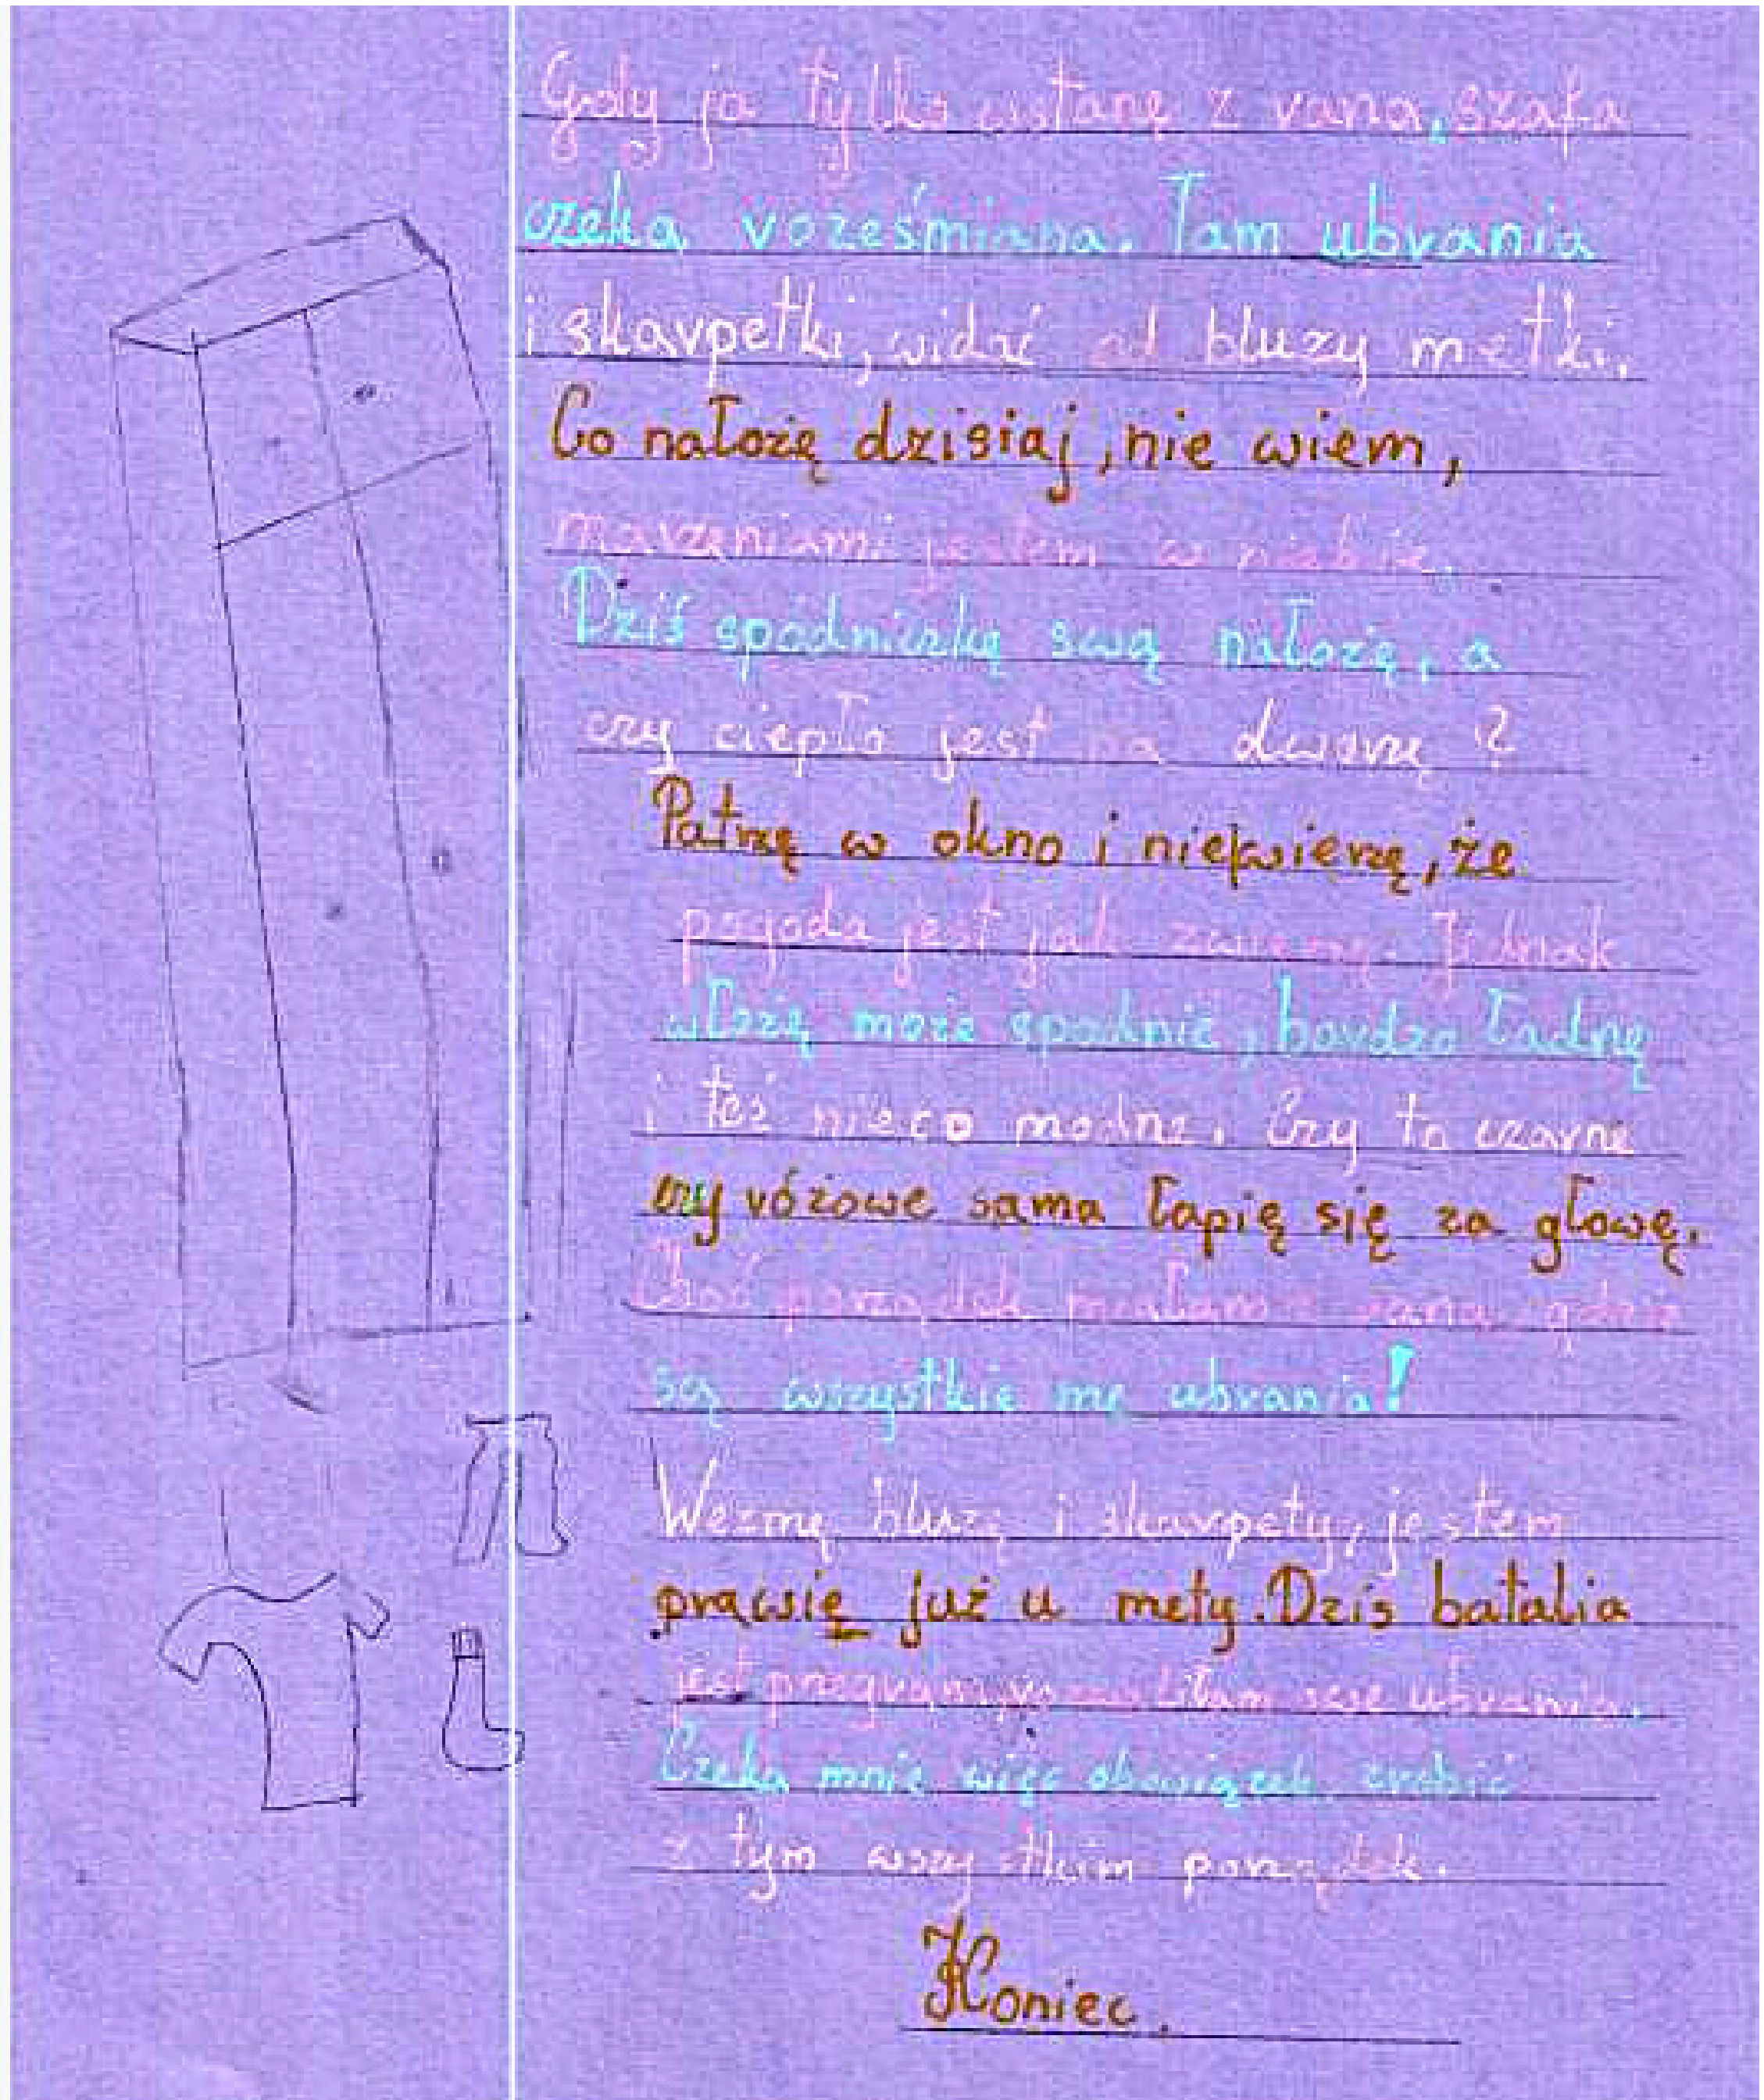 Gdy ja tylko wstanę z rana, szafa
czeka roześmiana. Tam ubrania
i skarpetki, widać od bluzy metki.
Co nałożę dzisiaj, nie wiem,
marzeniami jestem w niebie.
Dziś spódniczkę swą nałożę, a
czy ciepło jest na dworze?
Patrzę w okno i nie wierzę, że
pogoda jest jak zwierzę. Jednak
włożę może spodnie, bardzo ładne
i też nieco modne. Czy to czarne
czy różowe sama łapię się za głowę.
Choć porządek miałam z rana, gdzie
są wszystkie me ubrania!
Wezmę bluzę i skarpety, jestem
prawie już u mety. Dziś batalia
jest przegrana, swe ubrania.
Czeka mnie więc obowiązek zrobić
z tym wszystkim porządek.
Koniec.